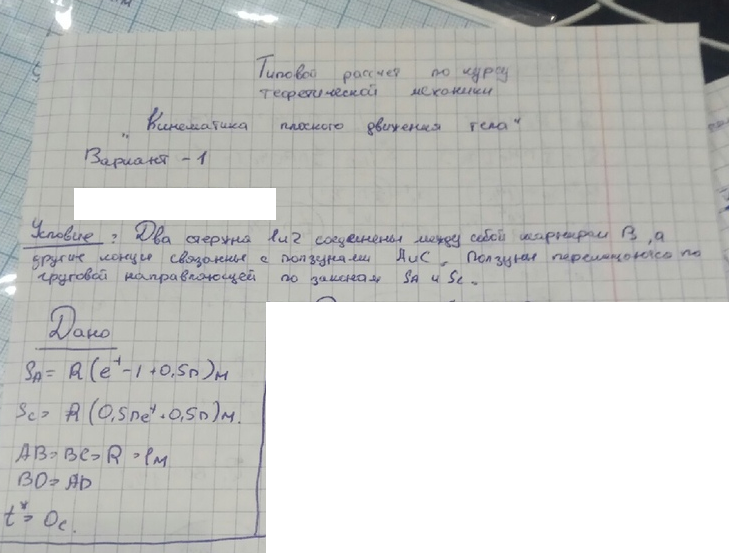 Типовой рассчет по курсу
теоретической механики
"Кинематика плоского движения тела"
Вариант - 1
Условие: Два стержня 1 и 2 соединены между собой шарниром B, а
другие концы связанные с ползунами A и C. Ползуны перемещаются по
круговой направляющей по законам SA и SC.
Дано
SA = R(e^t - 1 + 0,5п) м
SC = R(0,5пe^t + 0,5п) м.
AB = BC = R = 1м
BD = AD
t* = 0с.